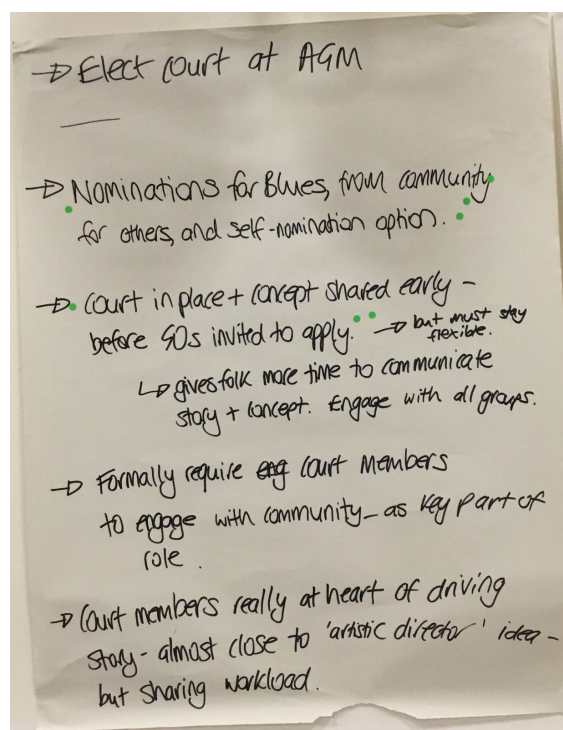 → Elect court at AGM
→ Nominations for Blues, from community
for others, and self-nomination option.
→ Court in place + concept shared early -
before SOs invited to apply. → but must stay
flexible.
↳ gives folk more time to communicate
story + concept. Engage with all groups.
→ Formally require eng court members
to engage with community - as key part of
role.
→ Court members really at heart of driving
story - almost close to 'artistic director' idea -
but sharing workload.